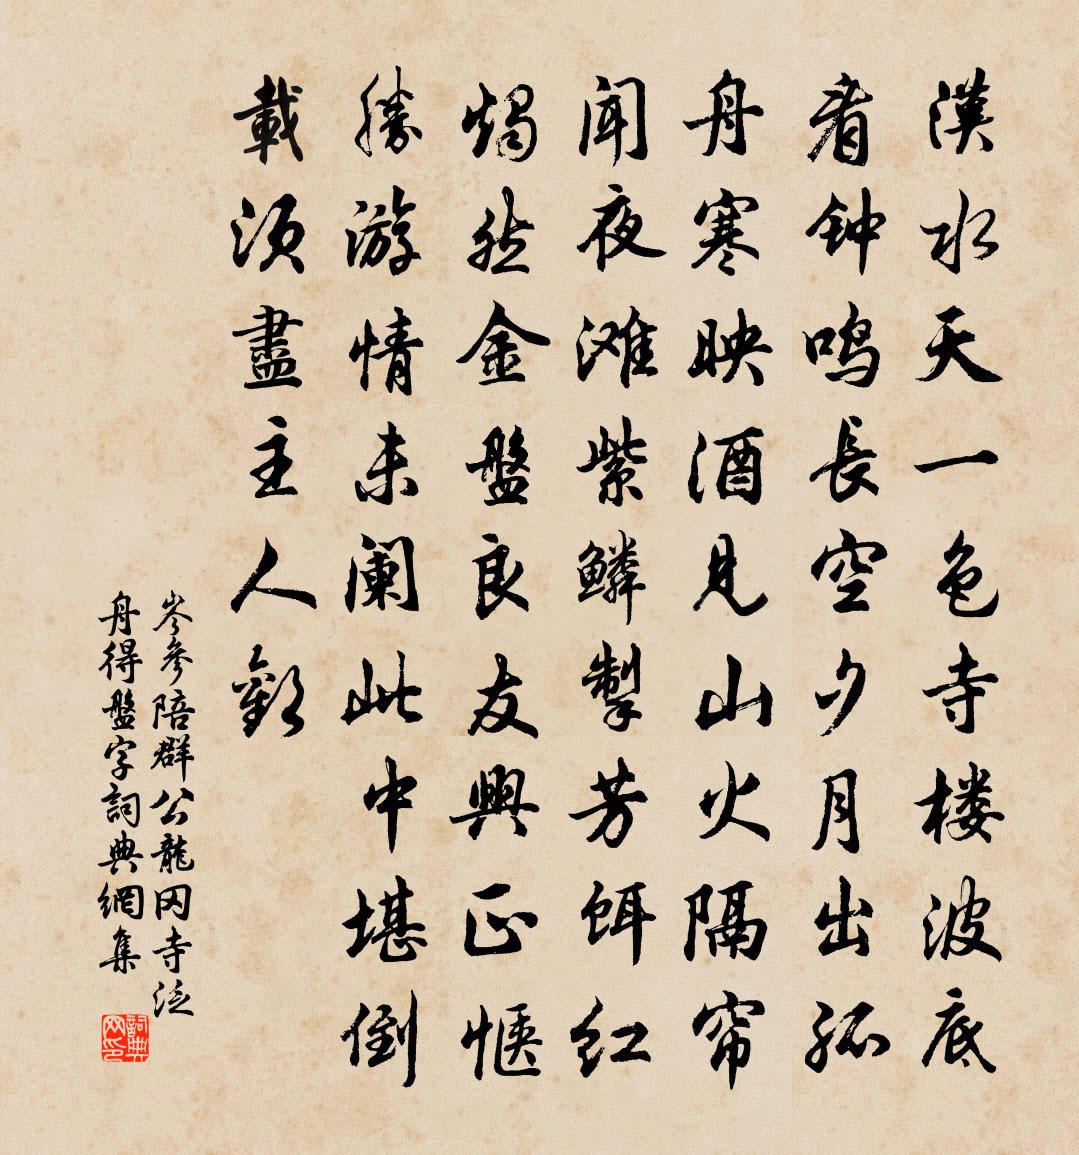 漢水天一色寺楼波底
看钟鸣長空夕月出孤
舟寒映酒見山火隔帘
闻夜滩紫鳞掣芳餌红
燭然金盤良友興正惬
勝游情未阑此中堪倒
載须盡主人歡
岑參陪群公龍冈寺泛
舟得盤字詞典網集
詞典网印